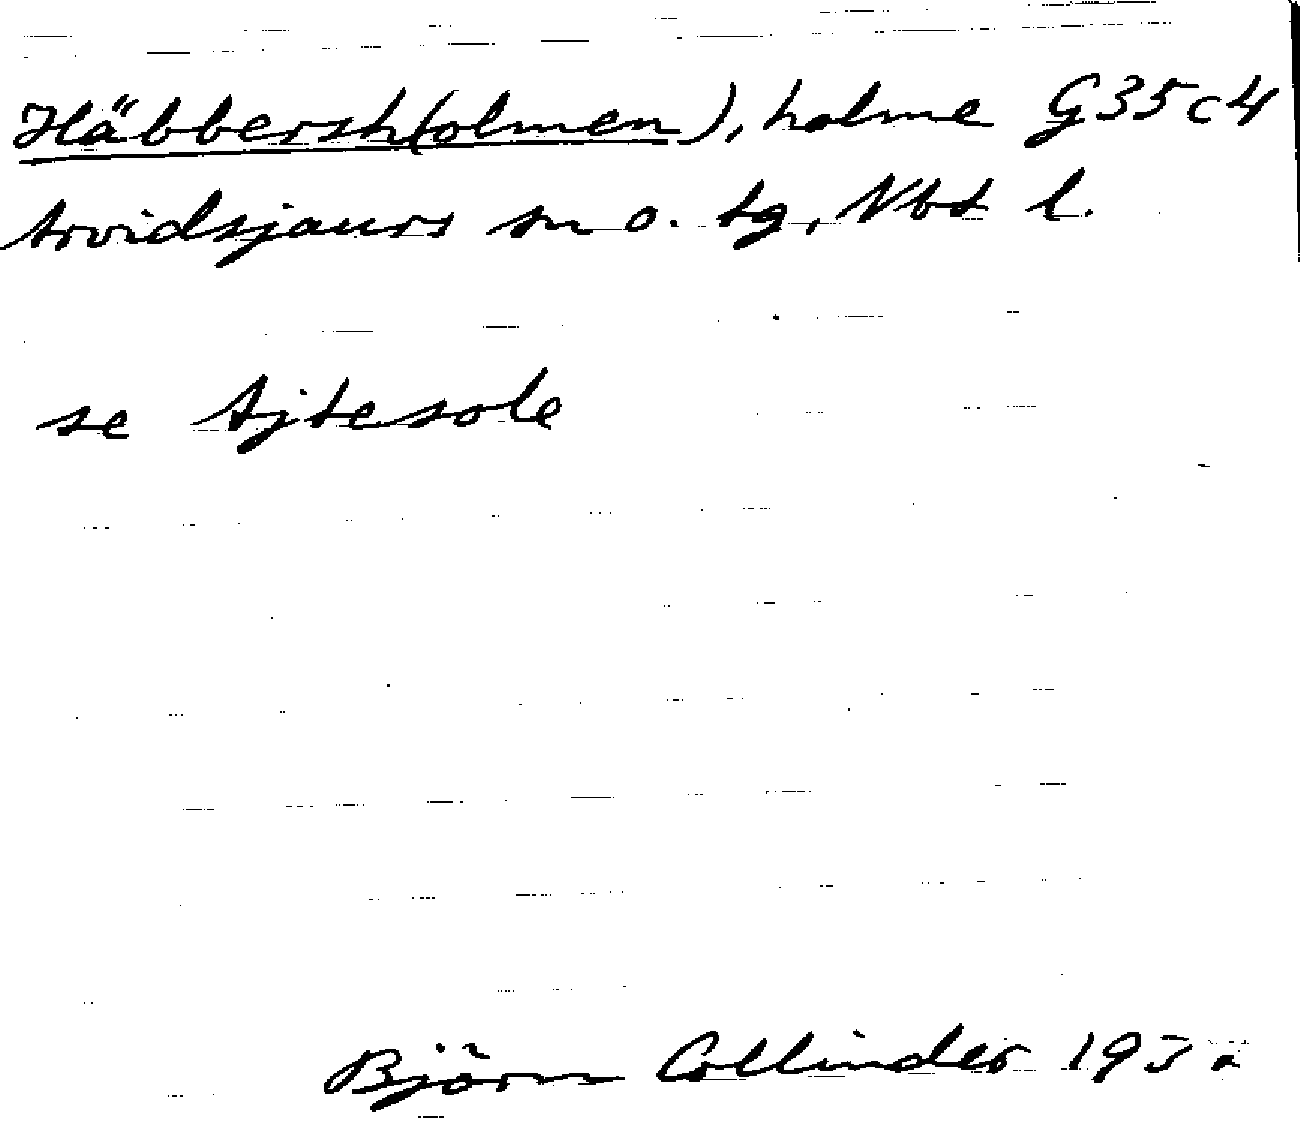 Häbbersh(olmen), holme G35c4
Arvidsjaurs sn o. tg, Vbt l.
se Ajtesole
Björn Collinder